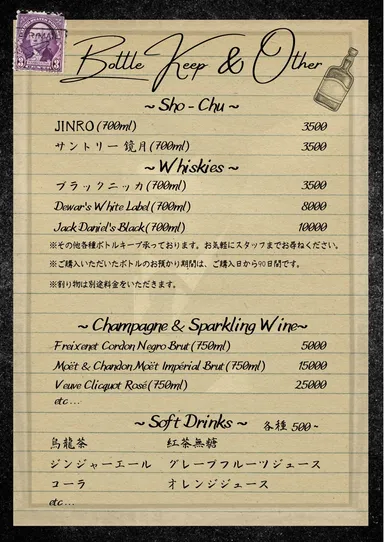 Bottle Keep & Other
~ Sho-Chu ~
JINRO (700ml) 3500
サントリー 鏡月(700ml) 3500
~ Whiskies ~
ブラックニッカ(700ml) 3500
Dewar's White Label (700ml) 8000
Jack Daniel's Black (700ml) 10000
※その他各種ボトルキープ承っております。お気軽にスタッフまでお尋ねください。
※ご購入いただいたボトルのお預かり期間は、ご購入日から90日間です。
※割り物は別途料金をいただきます。
~ Champagne & Sparkling Wine~
Freixenet Cordon Negro Brut (750ml) 5000
Moët & Chandon Moët Impérial Brut (750ml) 15000
Veuve Clicquot Rosé (750ml) 25000
etc...
~ Soft Drinks ~ 各種 500~
烏龍茶 紅茶無糖
ジンジャーエール グレープフルーツジュース
コーラ オレンジジュース
etc...